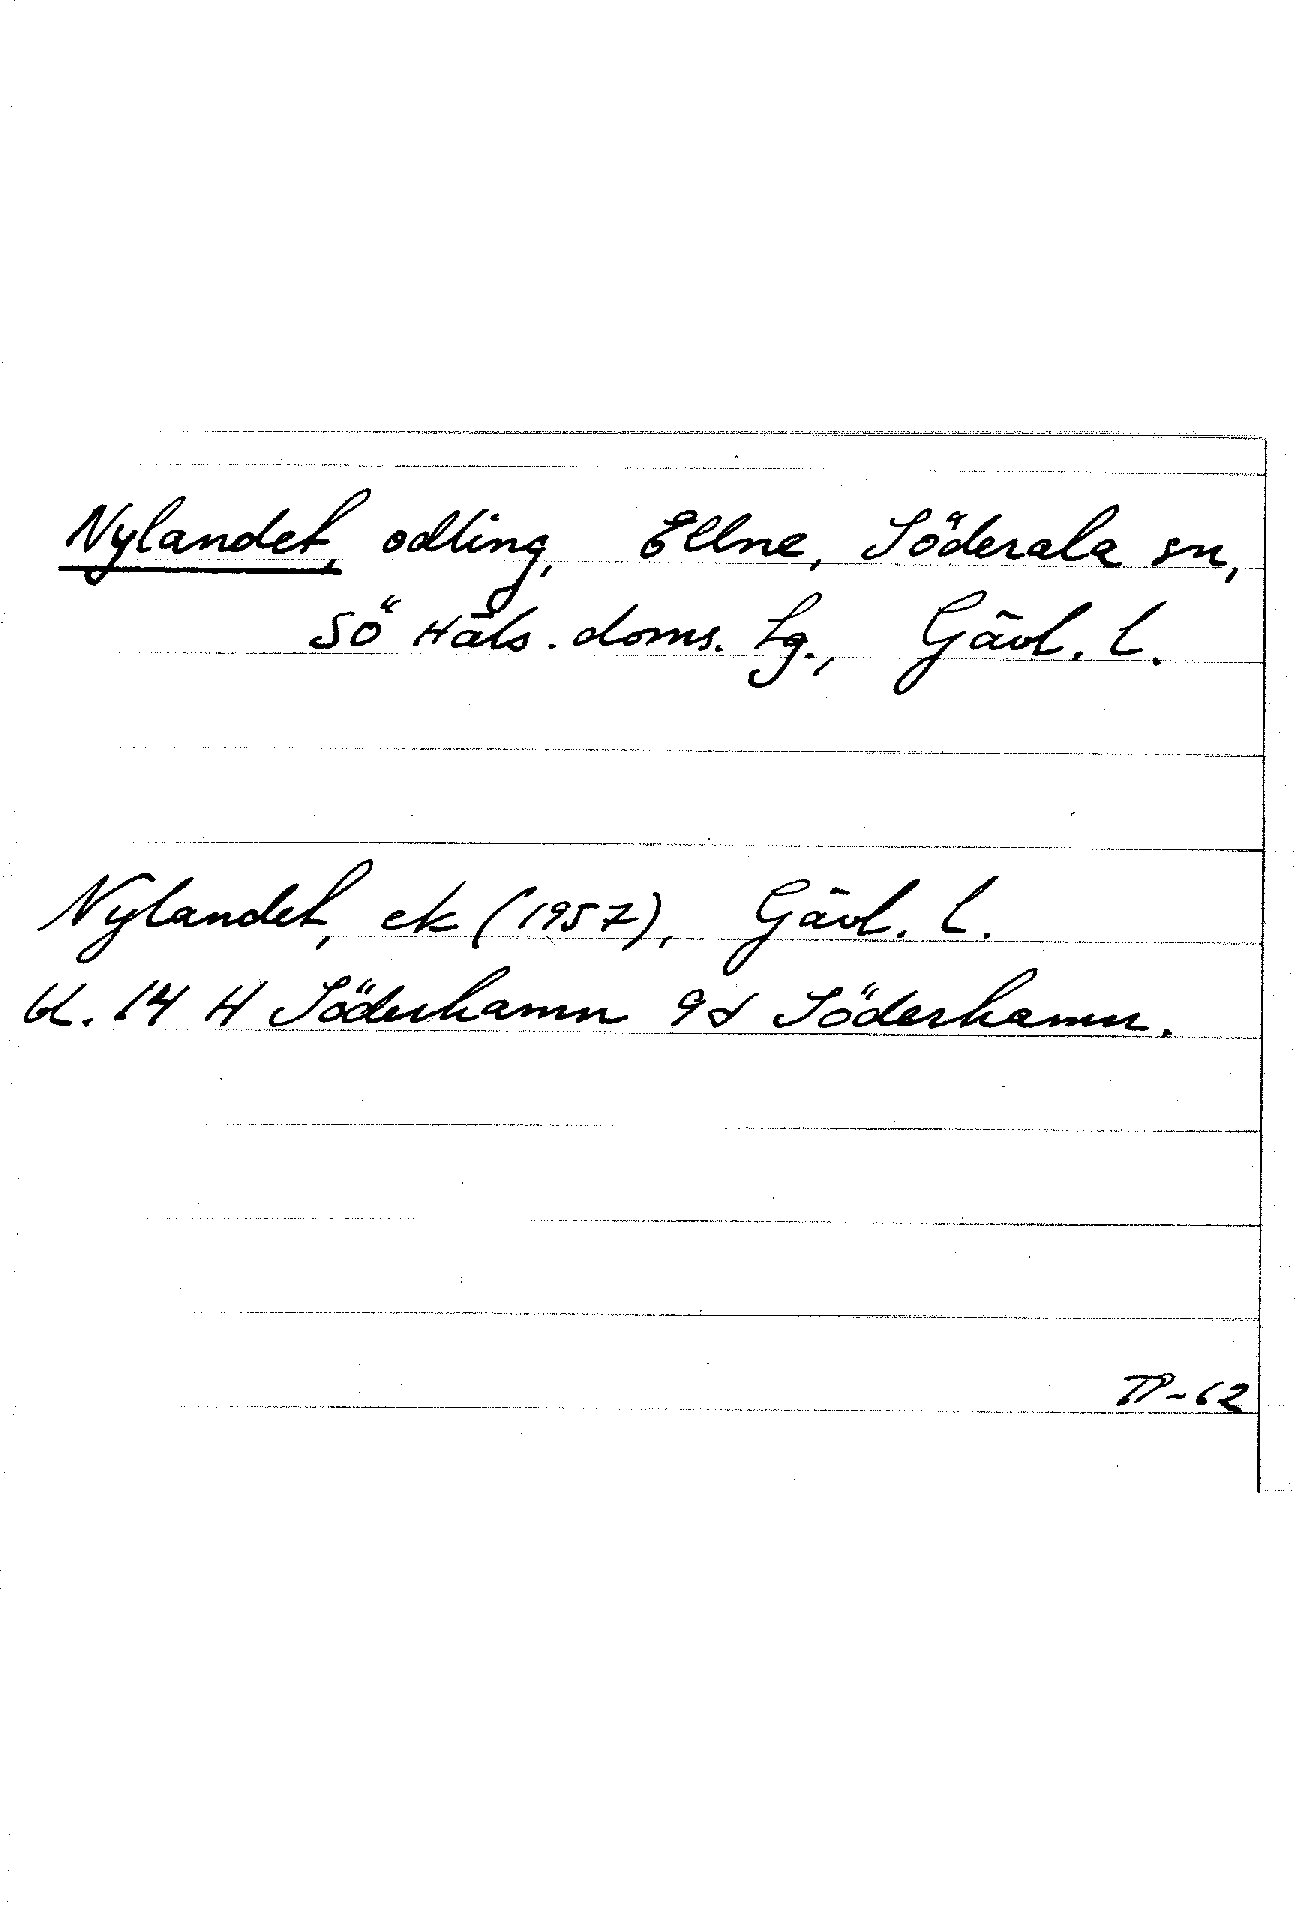 Nylandet, odling, Ellne, Söderala sn,
Sö Häls. doms. lg., Gävl. l.
Nylandet, ek (1957), Gävl. l.
bl. 14 H Söderhamn 9d Söderhamn.
TP-62